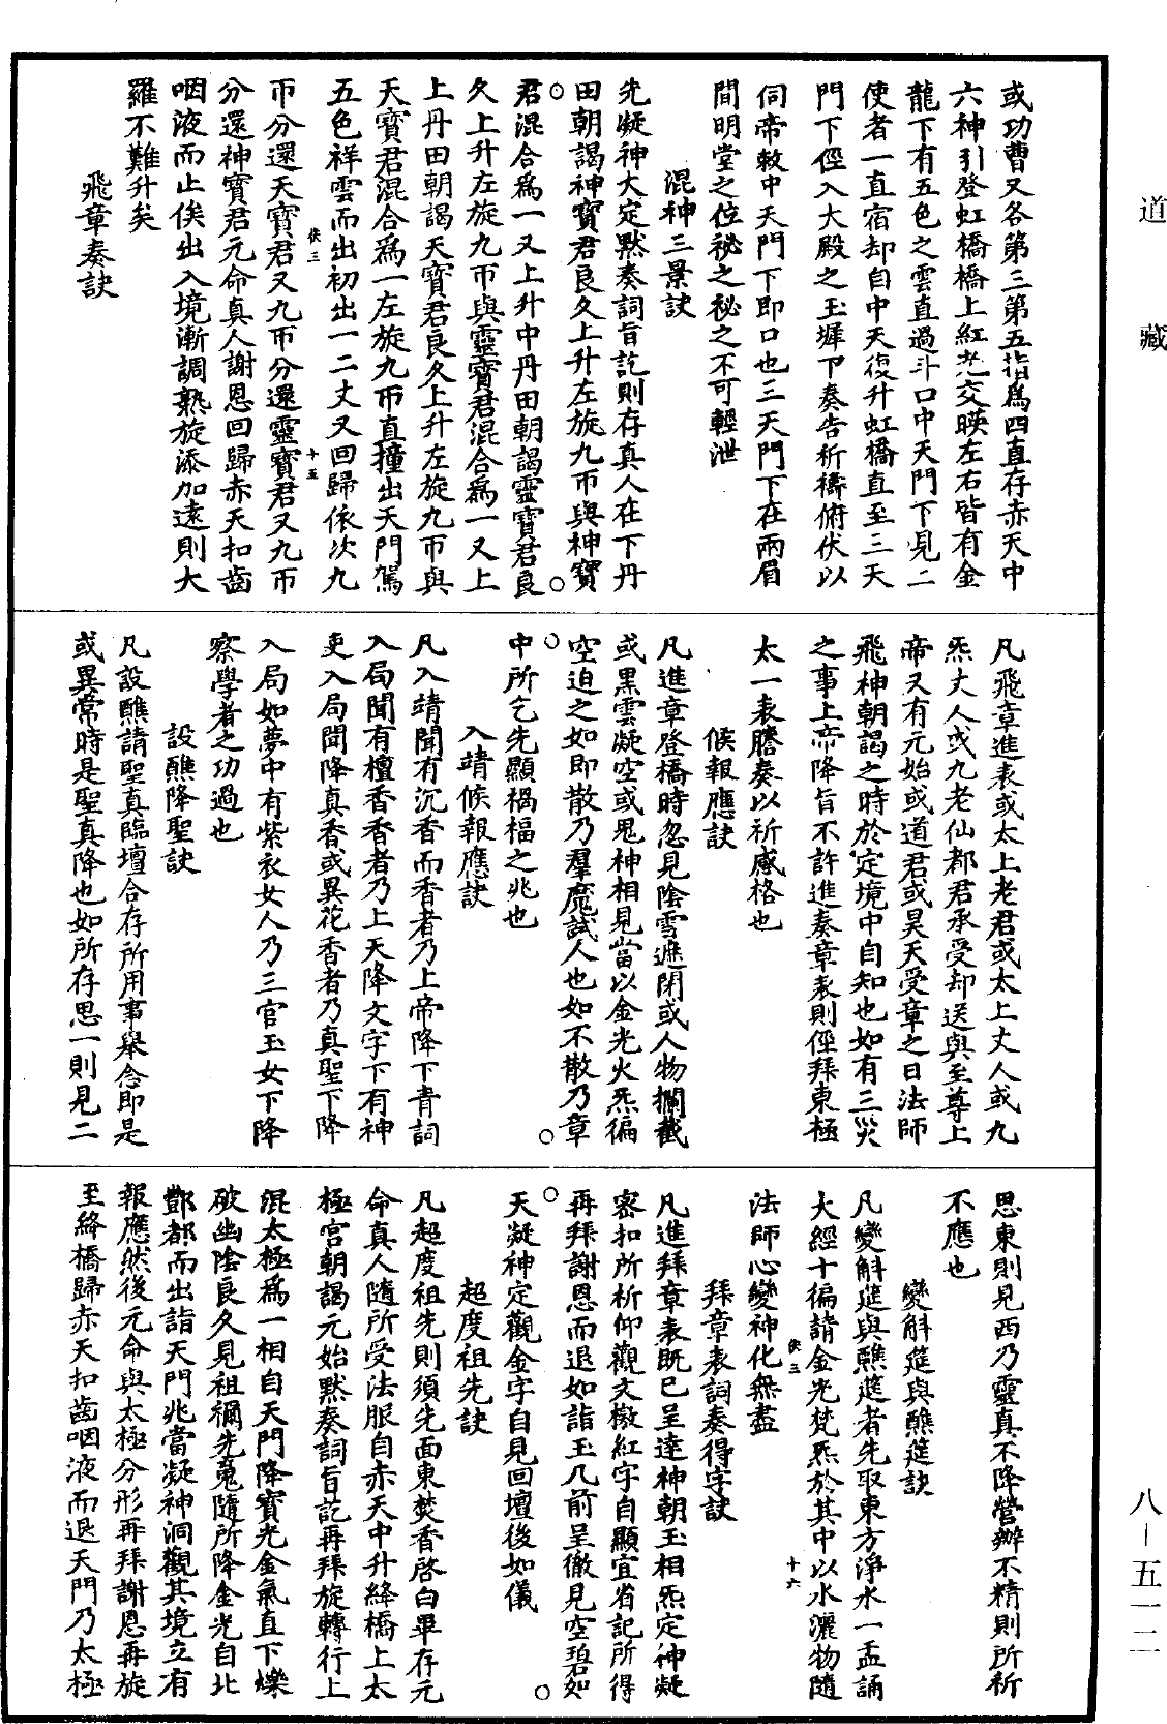 道藏
或功曹又各第三第五指爲四直存赤天中
六神引登虹橋橋上紅光交暎左右皆有金
龍下有五色之雲直過斗口中天門下見二
使者一直宿却自中天復升虹橋直至三天
門下徑入大殿之玉墀下奏告祈禱俯伏以
伺帝敕中天門下即口也三天門下在兩眉
間明堂之位祕之祕之不可輕泄
混神三景訣
先凝神大定默奏詞旨訖則存真人在下丹
田朝謁神寶君良久上升左旋九帀與神寶
君混合爲一又上升中丹田朝謁靈寶君良
久上升左旋九帀與靈寶君混合爲一又上
上丹田朝謁天寶君良久上升左旋九帀與
天寶君混合爲一左旋九帀直撞出天門駕
五色祥雲而出初出一二丈又回歸依次九
俠三 十五
帀分還天寶君又九帀分還靈寶君又九帀
分還神寶君元命真人謝恩回歸赤天扣齒
咽液而止俟出入境漸調熟旋添加遠則大
羅不難升矣
飛章奏訣
凡飛章進表或太上老君或太上丈人或九
炁丈人或九老仙都君承受却送與至尊上
帝又有元始或道君或昊天受章之日法師
飛神朝謁之時於定境中自知也如有三災
之事上帝降旨不許進奏章表則徑拜東極
太一表謄奏以祈感格也
候報應訣
凡進章登橋時忽見陰雪遮閉或人物攔截
或黑雲凝空或鬼神相見當以金光火炁徧
空迫之如即散乃羣魔試人也如不散乃章
中所乞先顯禍福之兆也
入靖候報應訣
凡入靖聞有沉香而香者乃上帝降下青詞
入局聞有檀香香者乃上天降文字下有神
吏入局聞降真香或異花香者乃真聖下降
入局如夢中有紫衣女人乃三官玉女下降
察學者之功過也
設醮降聖訣
凡設醮請聖真臨壇合存所用事舉念即是
或異常時是聖真降也如所存思一則見二
思東則見西乃靈真不降營辦不精則所祈
不應也
變斛筵與醮筵訣
凡變斛筵與醮筵者先取東方淨水一盂誦
大經十徧請金光梵炁於其中以水灑物隨
俠三 十六
法師心變神化無盡
拜章表詞奏得字訣
凡進拜章表既已呈達神朝玉相炁定神凝
密扣所祈仰觀文檄紅字自顯宜省記所得
再拜謝恩而退如詣玉几前呈徹見空碧如
天凝神定觀金字自見回壇後如儀
超度祖先訣
凡超度祖先則須先面東焚香啓白畢存元
命真人隨所受法服自赤天中升絳橋上太
極宮朝謁元始默奏詞旨訖再拜旋轉行上
混太極爲一相自天門降寶光金氣直下爍
破幽陰良久見祖禰先䰟隨所降金光自北
酆都而出詣天門兆當凝神洞觀其境立有
報應然後元命與太極分形再拜謝恩再旋
至絳橋歸赤天扣齒咽液而退天門乃太極
八—五一二